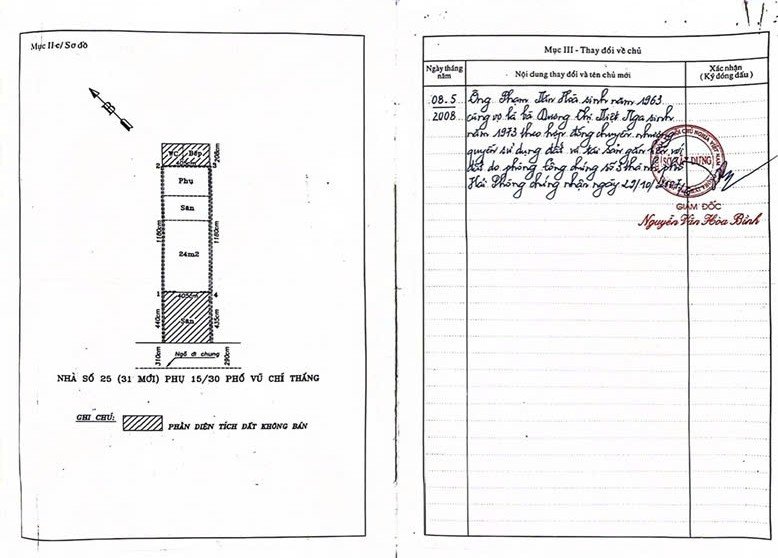 Mục IIc/ Sơ đồ
B
WC Bếp
200cm
2
405cm
3
Phụ
Sân
1180cm
1180cm
24m2
1
405cm
4
Sân
440cm
435cm
310cm
Ngõ đi chung
290cm
NHÀ SỐ 25 (31 MỚI) PHỤ 15/30 PHỐ VŨ CHÍ THẮNG
GHI CHÚ:
PHẦN DIỆN TÍCH ĐẤT KHÔNG BÁN
Mục III - Thay đổi về chủ
Ngày tháng năm
Nội dung thay đổi và tên chủ mới
Xác nhận
(Ký đóng dấu)
08.5
2008
Ông Phạm Tấn Hòa sinh năm 1963
cùng vợ là bà Dương Thị Diệt Nga sinh
năm 1973 theo hợp đồng chuyển nhượng
quyền sử dụng đất và tài sản gắn liền với
đất do phòng Công chứng số 3 thành phố
Hải Phòng chứng nhận ngày 29/10/2007
SỞ XÂY DỰNG
GIÁM ĐỐC
Nguyễn Văn Hòa Bình